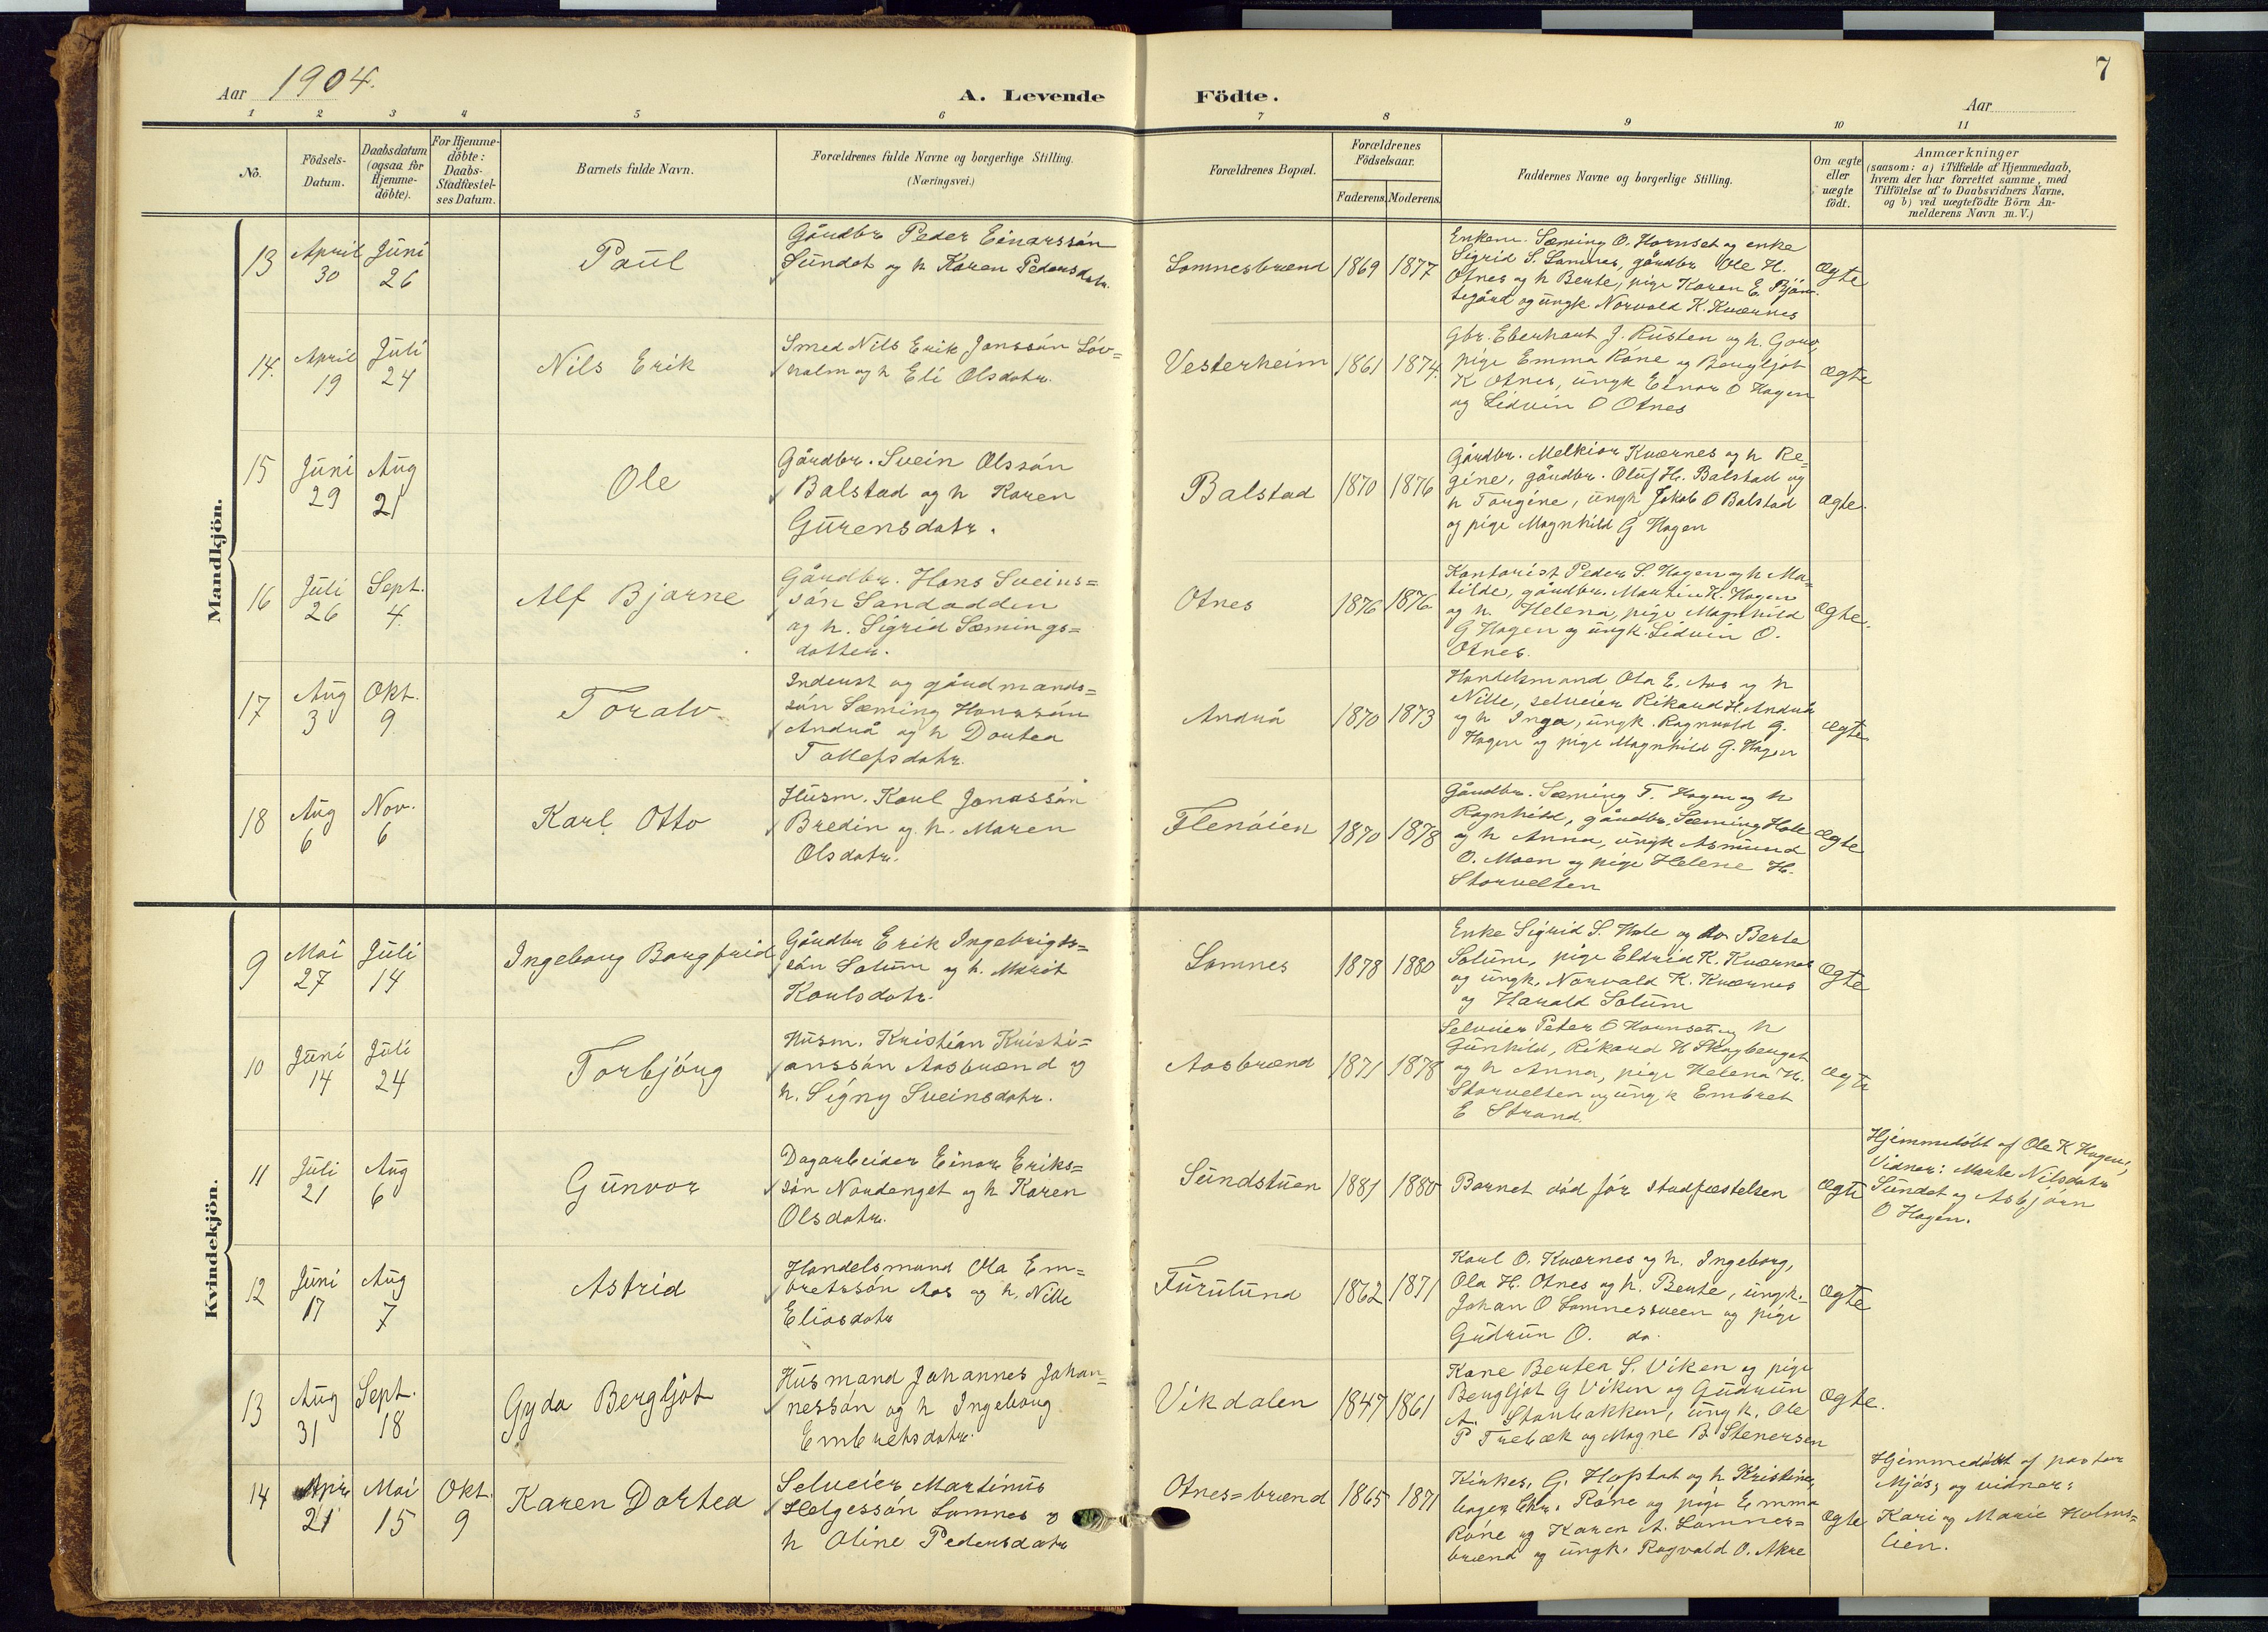 7
Aar 1904.
A. Levende Födte.
Aar
1 2 3 4 5 6 7 8 9 10 11
No.
Födsels-
Datum.
Daabsdatum
(ogsaa for
Hjemme-
döbte).
For Hjemme-
döbte:
Daabs-
Stadfæstel-
ses Datum.
Barnets fulde Navn.
Forældrenes fulde Navne og borgerlige Stilling.
(Næringsvei.)
Forældrenes Bopæl.
Forældrenes
Födselsaar.
Faderens. Moderens.
Faddernes Navne og borgerlige Stilling.
Om ægte
eller
uægte
födt.
Anmærkninger
(saasom: a) i Tilfælde af Hjemmedaab,
hvem der har forrettet samme, med
Tilföielse af to Daabsvidners Navne,
og b) ved uægtefödte Börn An-
melderens Navn m. V.)
Mandkjön.
13
April
30
Juni
26
Paul
Gårdbr Peder Einarssön
Sundet og h Karen Pedersdatr.
Lomnesbrænd
1869
1877
Enkem. Sæming O. Hornset og enke
Sigrid S. Lomnes, gårdbr Ole H.
Otnes og h Berte, pige Karen E. Bjön-
tegård og ungk Norvald K. Kværnes
Ægte
14.
April
19
Juli
24
Nils Erik
Smed Nils Erik Jonssön Löv=
holm og h Eli Olsdatr.
Vesterheim
1861
1874.
Gbr. Eberhart J. Rusten og h. Gouv,
pige Emma Röne og Bergljot
K Otnes, ungk Einar O Hagen
og Lidvin O Otnes
Ægte
15
Juni
29
Aug
21
Ole
Gårdbr. Svein Olssön
Balstad og h Karen
Gurensdatr.
Balstad
1870
1876
Gårdbr. Melkior Kværnes og h Re=
gine, gårdbr. Oluf H. Balstad og
h Torgine, ungk Jakob O Balstad
og pige Magnhild G Hagen
ægte.
16
Juli
26
Sept.
4.
Alf Bjarne
Gårdbr. Hans Sveins=
sön Sandodden
og h. Sigrid Sæmings=
datter.
Otnes
1876
1876
Kontorist Peder S. Hagen og h Ma=
tilde, gårdbr. Martin K. Hagen
og h. Helena, pige Magnhild
G Hagen og ungk. Lidvin O.
Otnes.
Ægte.
17
Aug
3
Okt.
9
Toralv.
Inderst og gårdmands=
sön Sæming Hanssön
Andrå og h Dortea
Tollefsdatr.
Andrå
1870
1873
Handelsmand Ola E. Aas og h
Nille, selveier Rikard H. Andrå
og h Inga, ungk. Ragnvald G.
Hagen og pige Magnhild G. Hagen
Ægte
18
Aug
6
Nov.
6
Karl Otto
Husm. Karl Jonassön
Bredin og h. Maren
Olsdatr.
Flenöien
1870
1878
Gårdbr. Sæming T. Hagen og h
Ragnhild, gårdbr. Sæming Hole
og h Anna, ungk Asmund
O. Moen og pige Helene H.
Storvelten
Ægte
Kvindekjön.
9
Mai
27
Juli
14
Ingeborg Borgfrid
Gårdbr Erik Ingebrigts=
sön Solum og h. Marit
Karlsdatr.
Lomnes
1878
1880
Enke Sigrid S. Hole og do Berte
Solum, pige Eldrid K. Kværnes
og ungk. Norvald K. Kværnes
og Harald Solum
Ægte
10
Juni
14
Juli
24
Torbjörg
Husm. Kristian Kristi=
anssön Aasbrænd og
h. Signy Sveinsdatr.
Aasbrænd
1871
1878
Selveier Peter O Hornset og h
Gunhild, Rikard H Skogberget
og h Anna, pige Helena H.
Storvelten og ungk Embret
E Strand.
Ægte
11
Juli
21
Aug
6
Gunvor
Dagarbeider Einar Eriks=
sön Nordenget og h Karen
Olsdatr.
Sundstuen
1881
1880
Barnet död för stadfæstelsen
Ægte
Hjemmedöbt af Ole K Hagen,
Vidner: Marte Nilsdatr
Sundet og Asbjörn
O Hagen.
12
Juni
17
Aug
7
Astrid
Handelsmand Ola Em=
bretssön Aas og h. Nille
Eliasdatr
Furulund
1862
1871
Karl O. Kværnes og h. Ingeborg,
Ola H. Otnes og h. Berte, ungk.
Johan O Lomnessveen og pige
Gudrun O. do.
Ægte
13
Aug
31
Sept.
18
Gyda Bergljot
Husmand Johannes Johan=
nessön og h Ingeborg
Embretsdatr.
Vikdalen
1847
1861
Kone Bertea S. Viken og pige
Bergljot G Viken og Gudrun
A. Storbakken, ungk. Ole
P Trebæk og Magne B Stenersen
Ægte.
14
Apr
21
Mai
15
Okt.
9
Karen Dortea
Selveier Martinus
Helgessön Lomnes og
h Oline Pedersdatr
Otnes=brænd
1865
1871
Kirkes. G. Hopstat og h Kristine,
bager Chr. Röne og pige Emma
Röne og Karen A. Lomnes=
brænd og ungk. Ragvald O. Akre
Ægte
Hjemmedöbt af pastor
Mjös, og vidner:
Kari og Marie Holms=
lien.